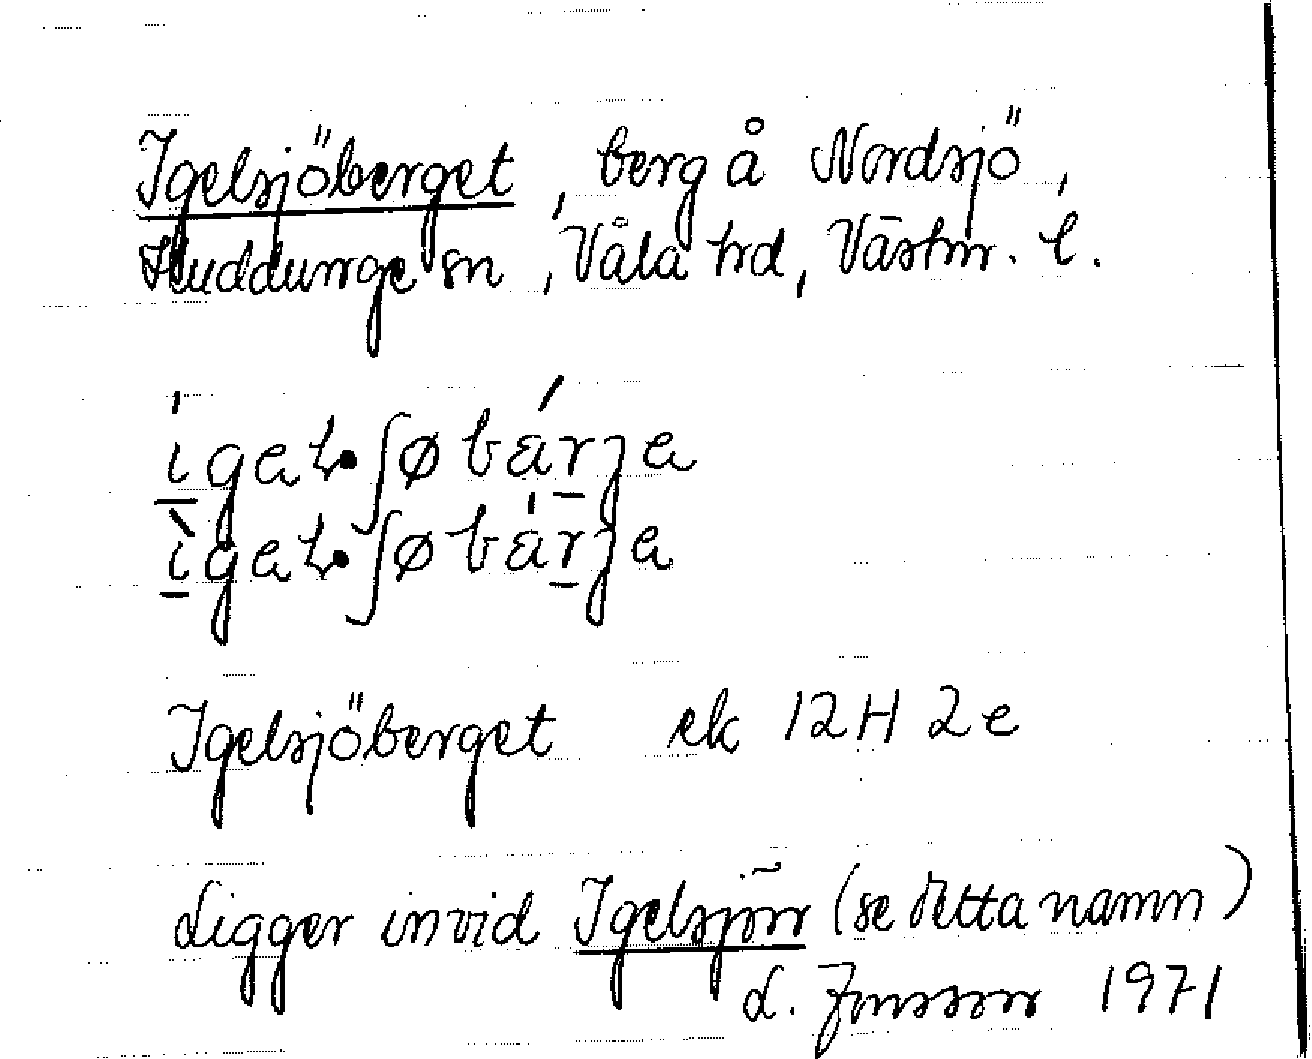 Igelsjöberget, berg å Nordsjö,
Huddunge sn, Våla hd, Västm. l.
Igelsjöberget ek 12H 2e
Ligger invid Igelsjön (se detta namn)
L. Jonsson 1971